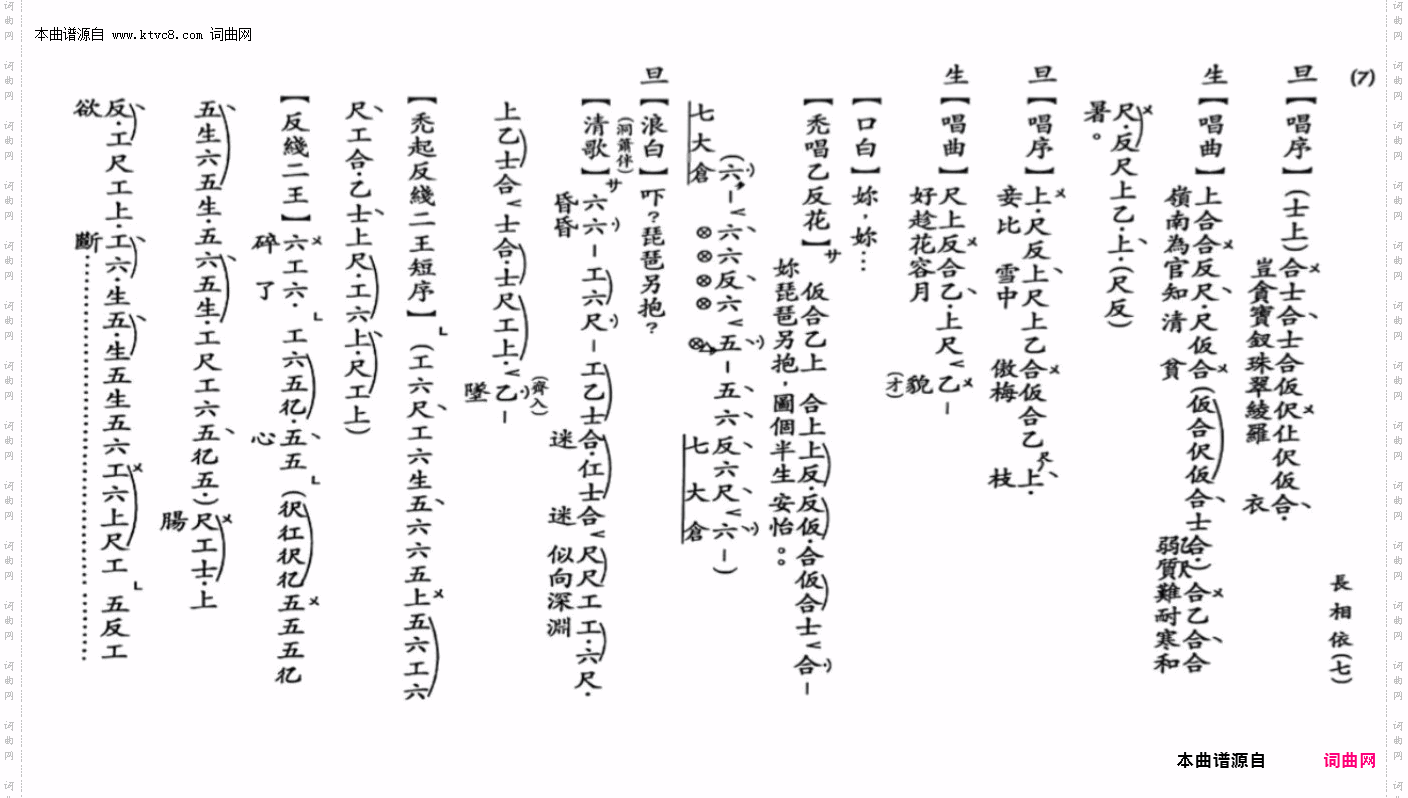 本曲谱源自 www.ktvc8.com 词曲网
(7)
長相依(七)
旦【唱序】(士上)合士合士合仮伬仩伬仮合.
豈貪寶釵珠翠綾羅 衣
生【唱曲】上合合反尺.尺仮合(仮合伬仮合士合.)合乙合合
嶺南為官知清 貧 弱質難耐寒和
尺.反尺上乙.上.(尺反)
暑。
旦【唱序】上.尺反上尺上乙合仮合乙上.
妾比 雪中 傲梅 枝
生【唱曲】尺上反合乙.上尺 乙—
好趁花容月 貌
(才)
【口白】妳,妳…
【禿唱乙反花】サ 仮合乙上 合上上反.反仮.合仮合士 合—
妳琵琶另抱,圖個半生安怡。。
(六,— 六六反六 五—五六反六尺 六—)
七大倉 ⊗⊗⊗⊗⊗ 七大倉
旦【浪白】吓?琵琶另抱?
(洞簫伴)
【清歌】サ六六—工六尺—工乙士合.仜士合 尺尺工工.六尺.
昏昏 迷 迷 似向深淵
上乙士合 士合.士尺工上. 乙—
墜
(齊入)
【禿起反綫二王短序】(工六尺工六生五六六五上五六工六
尺工合.乙士上尺.工六上.尺工上)
【反綫二王】六工六. 工六五𠆾.五五 (伬仜伬𠆾五五五𠆾
碎 了 心
五生六五生.五六五生.工尺工六五𠆾五.)尺工士.上
腸
反.工尺工上.工六.生五.生五生五六工六上尺工 五反工
欲 斷……………………
本曲谱源自 词曲网